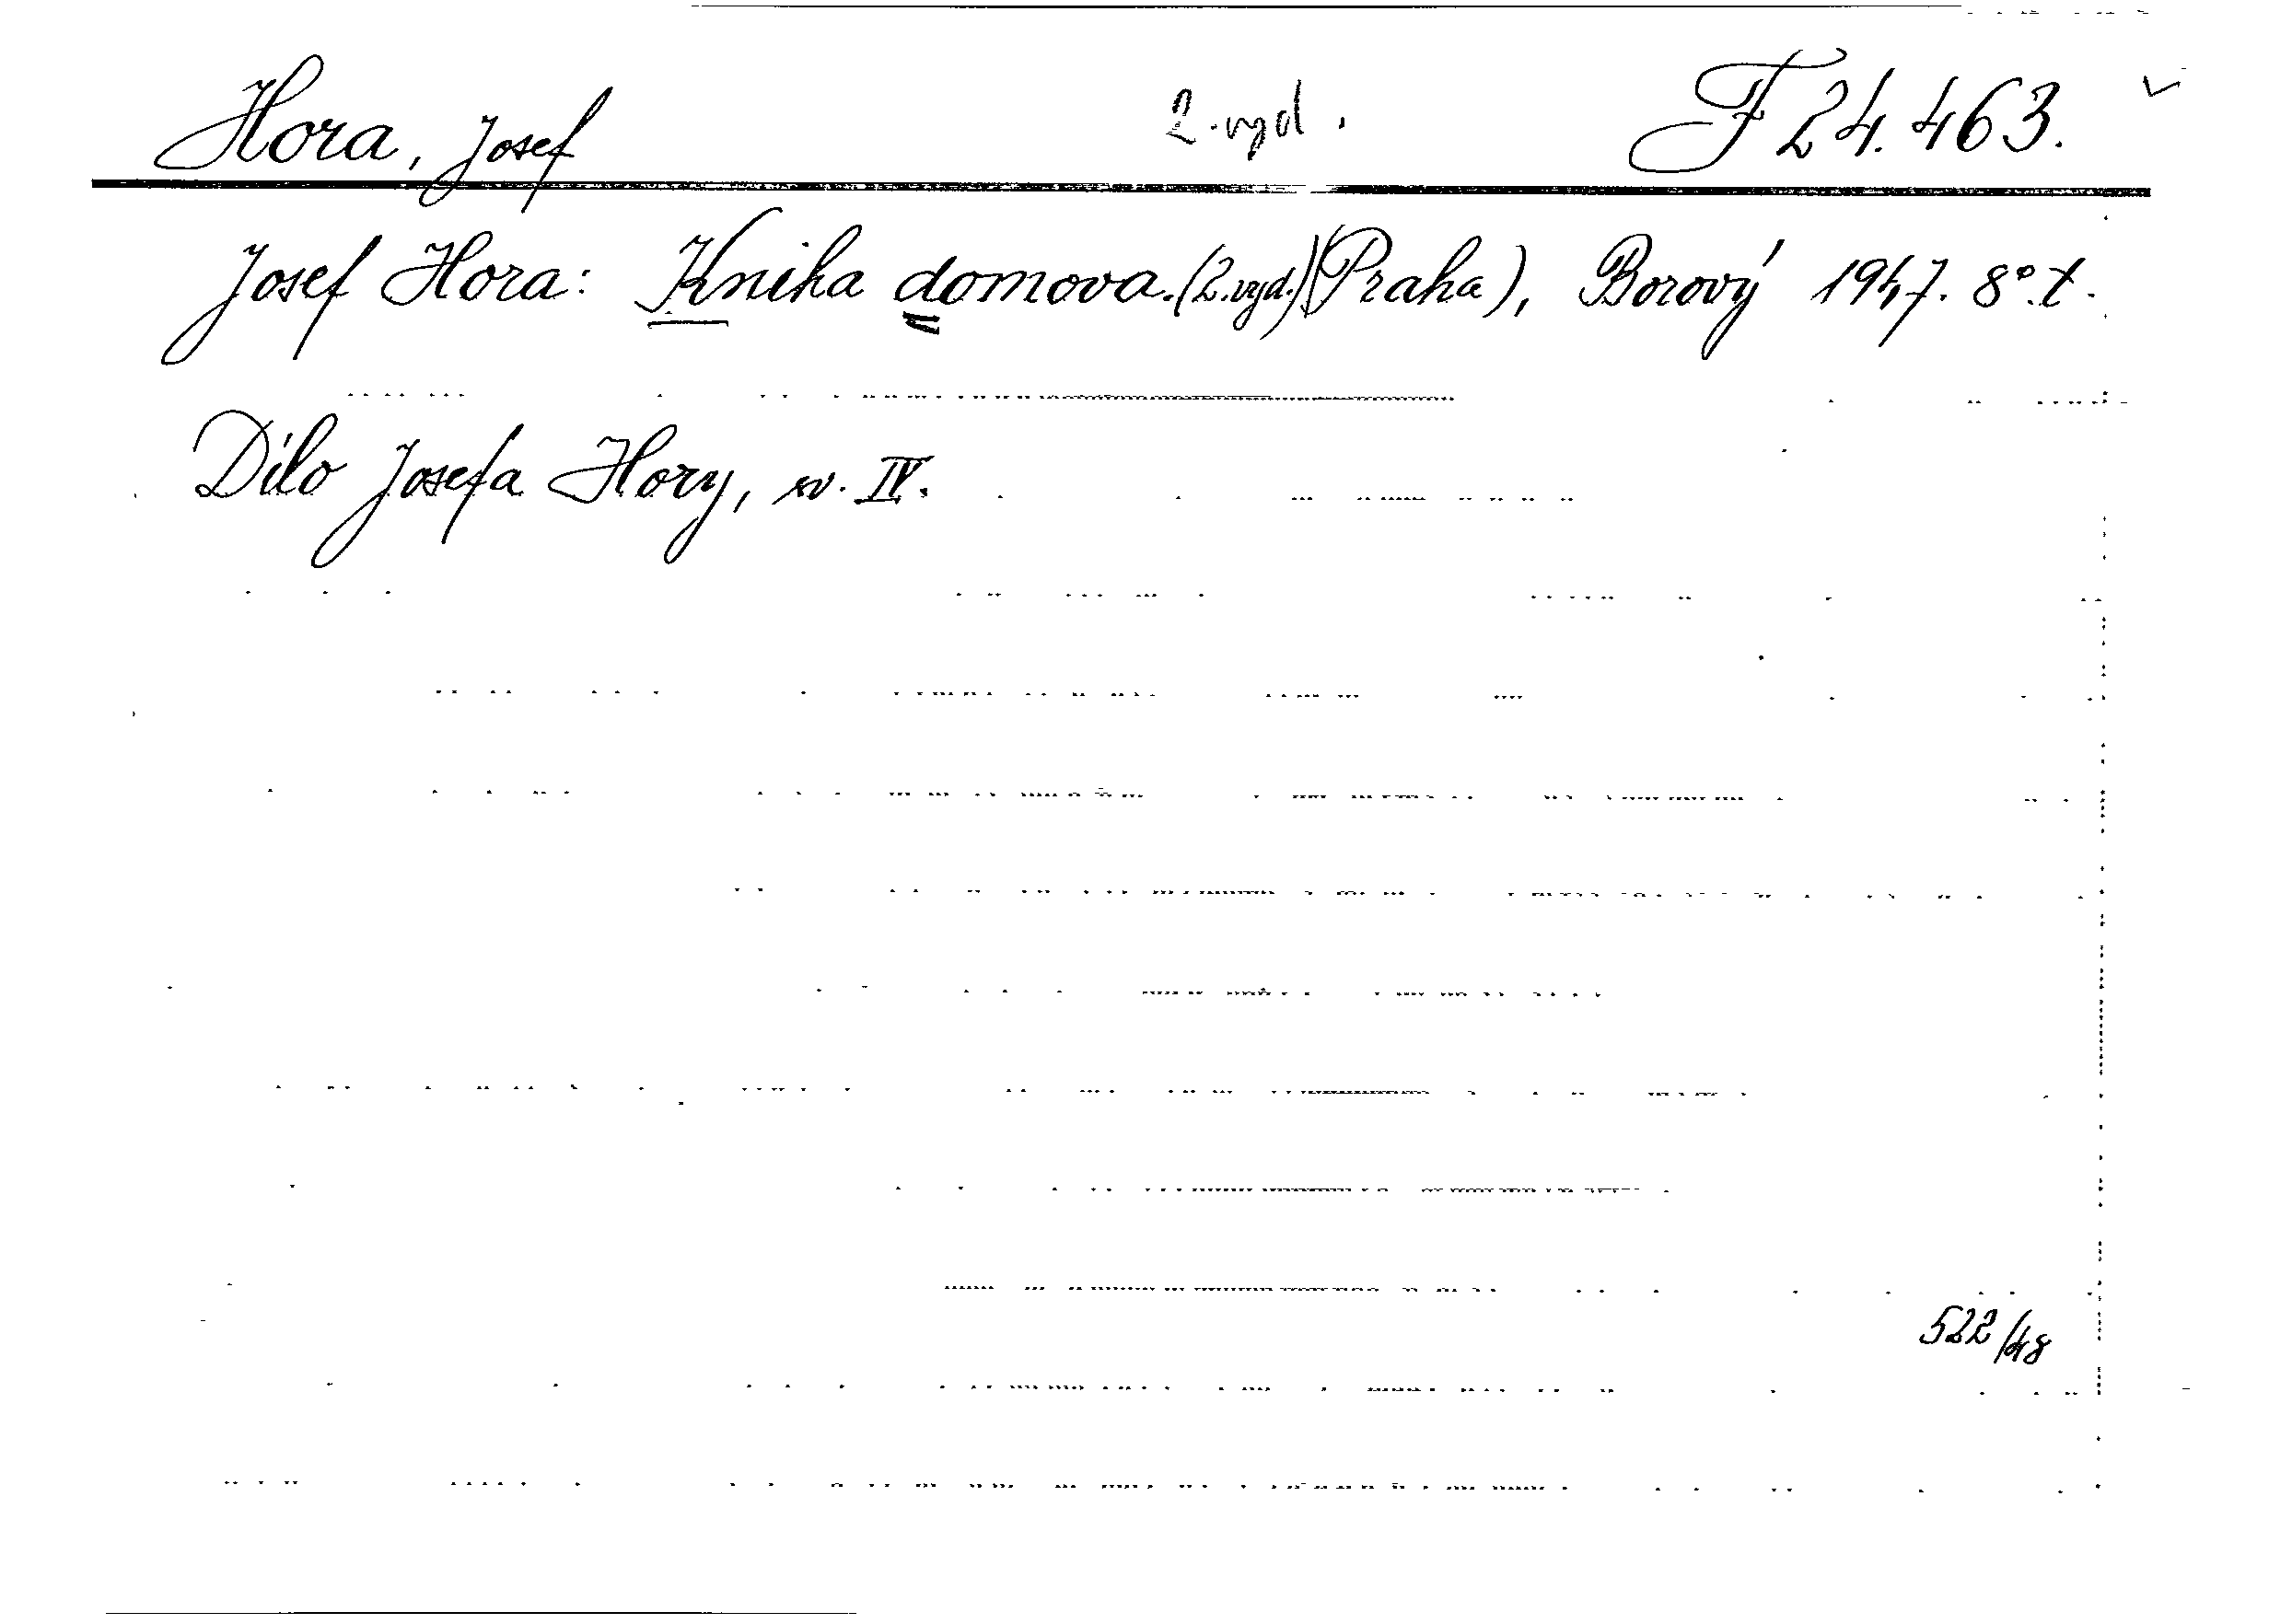 Hora, Josef 2. vyd. F 24.463.
Josef Hora: Kniha domova. (2. vyd.) (Praha), Borový 1947. 8°. t.
Dílo Josefa Hory, sv. IV.
522/48